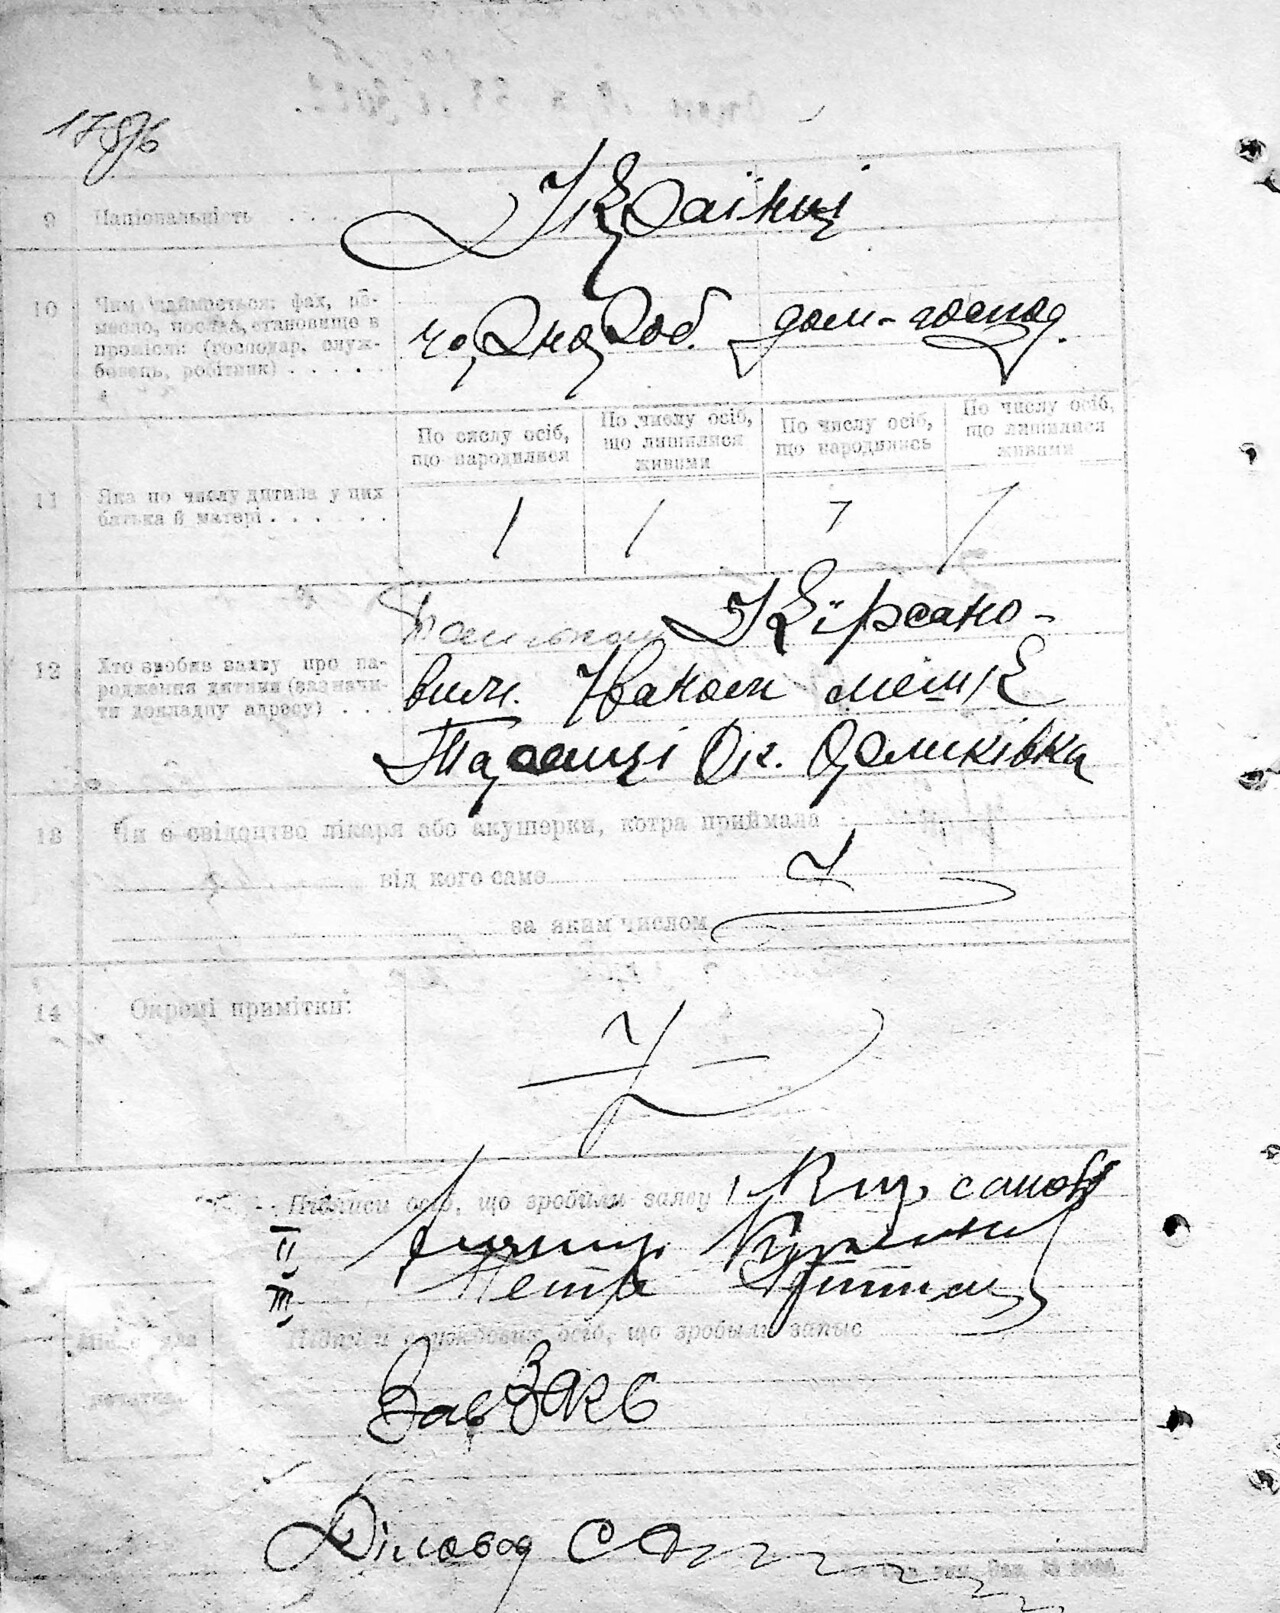 9 Національність . . . . Українці
10 Чим займається: фах, ре-
месло, посада, становище в
промислі (господар, служ-
бовець, робітник) . . . . .
чорнороб. дом-господ.
По числу осіб, що народилися
По числу осіб, що лишилися живими
По числу осіб, що народились
По числу осіб, що лишилися живими
11 Яка по числу дитина у цих
батька й матері . . . . . .
1 1 1 1
12 Хто зробив заяву про на-
родження дитини (зазначи-
ти докладну адресу) . . .
Батьком Кірсано-
вим. Іваном мешк
Таращі Ок.
13 Чи є свідоцтво лікаря або акушерки, котра приймала
від кого саме
за яким числом
14 Окремі примітки:
Підписи осіб, що зробили заяву 1, Кирсанов
II
III Петро
Підписи службових осіб, що зробили запис
Місце для
печатки
Зав ЗАКС
Діловод